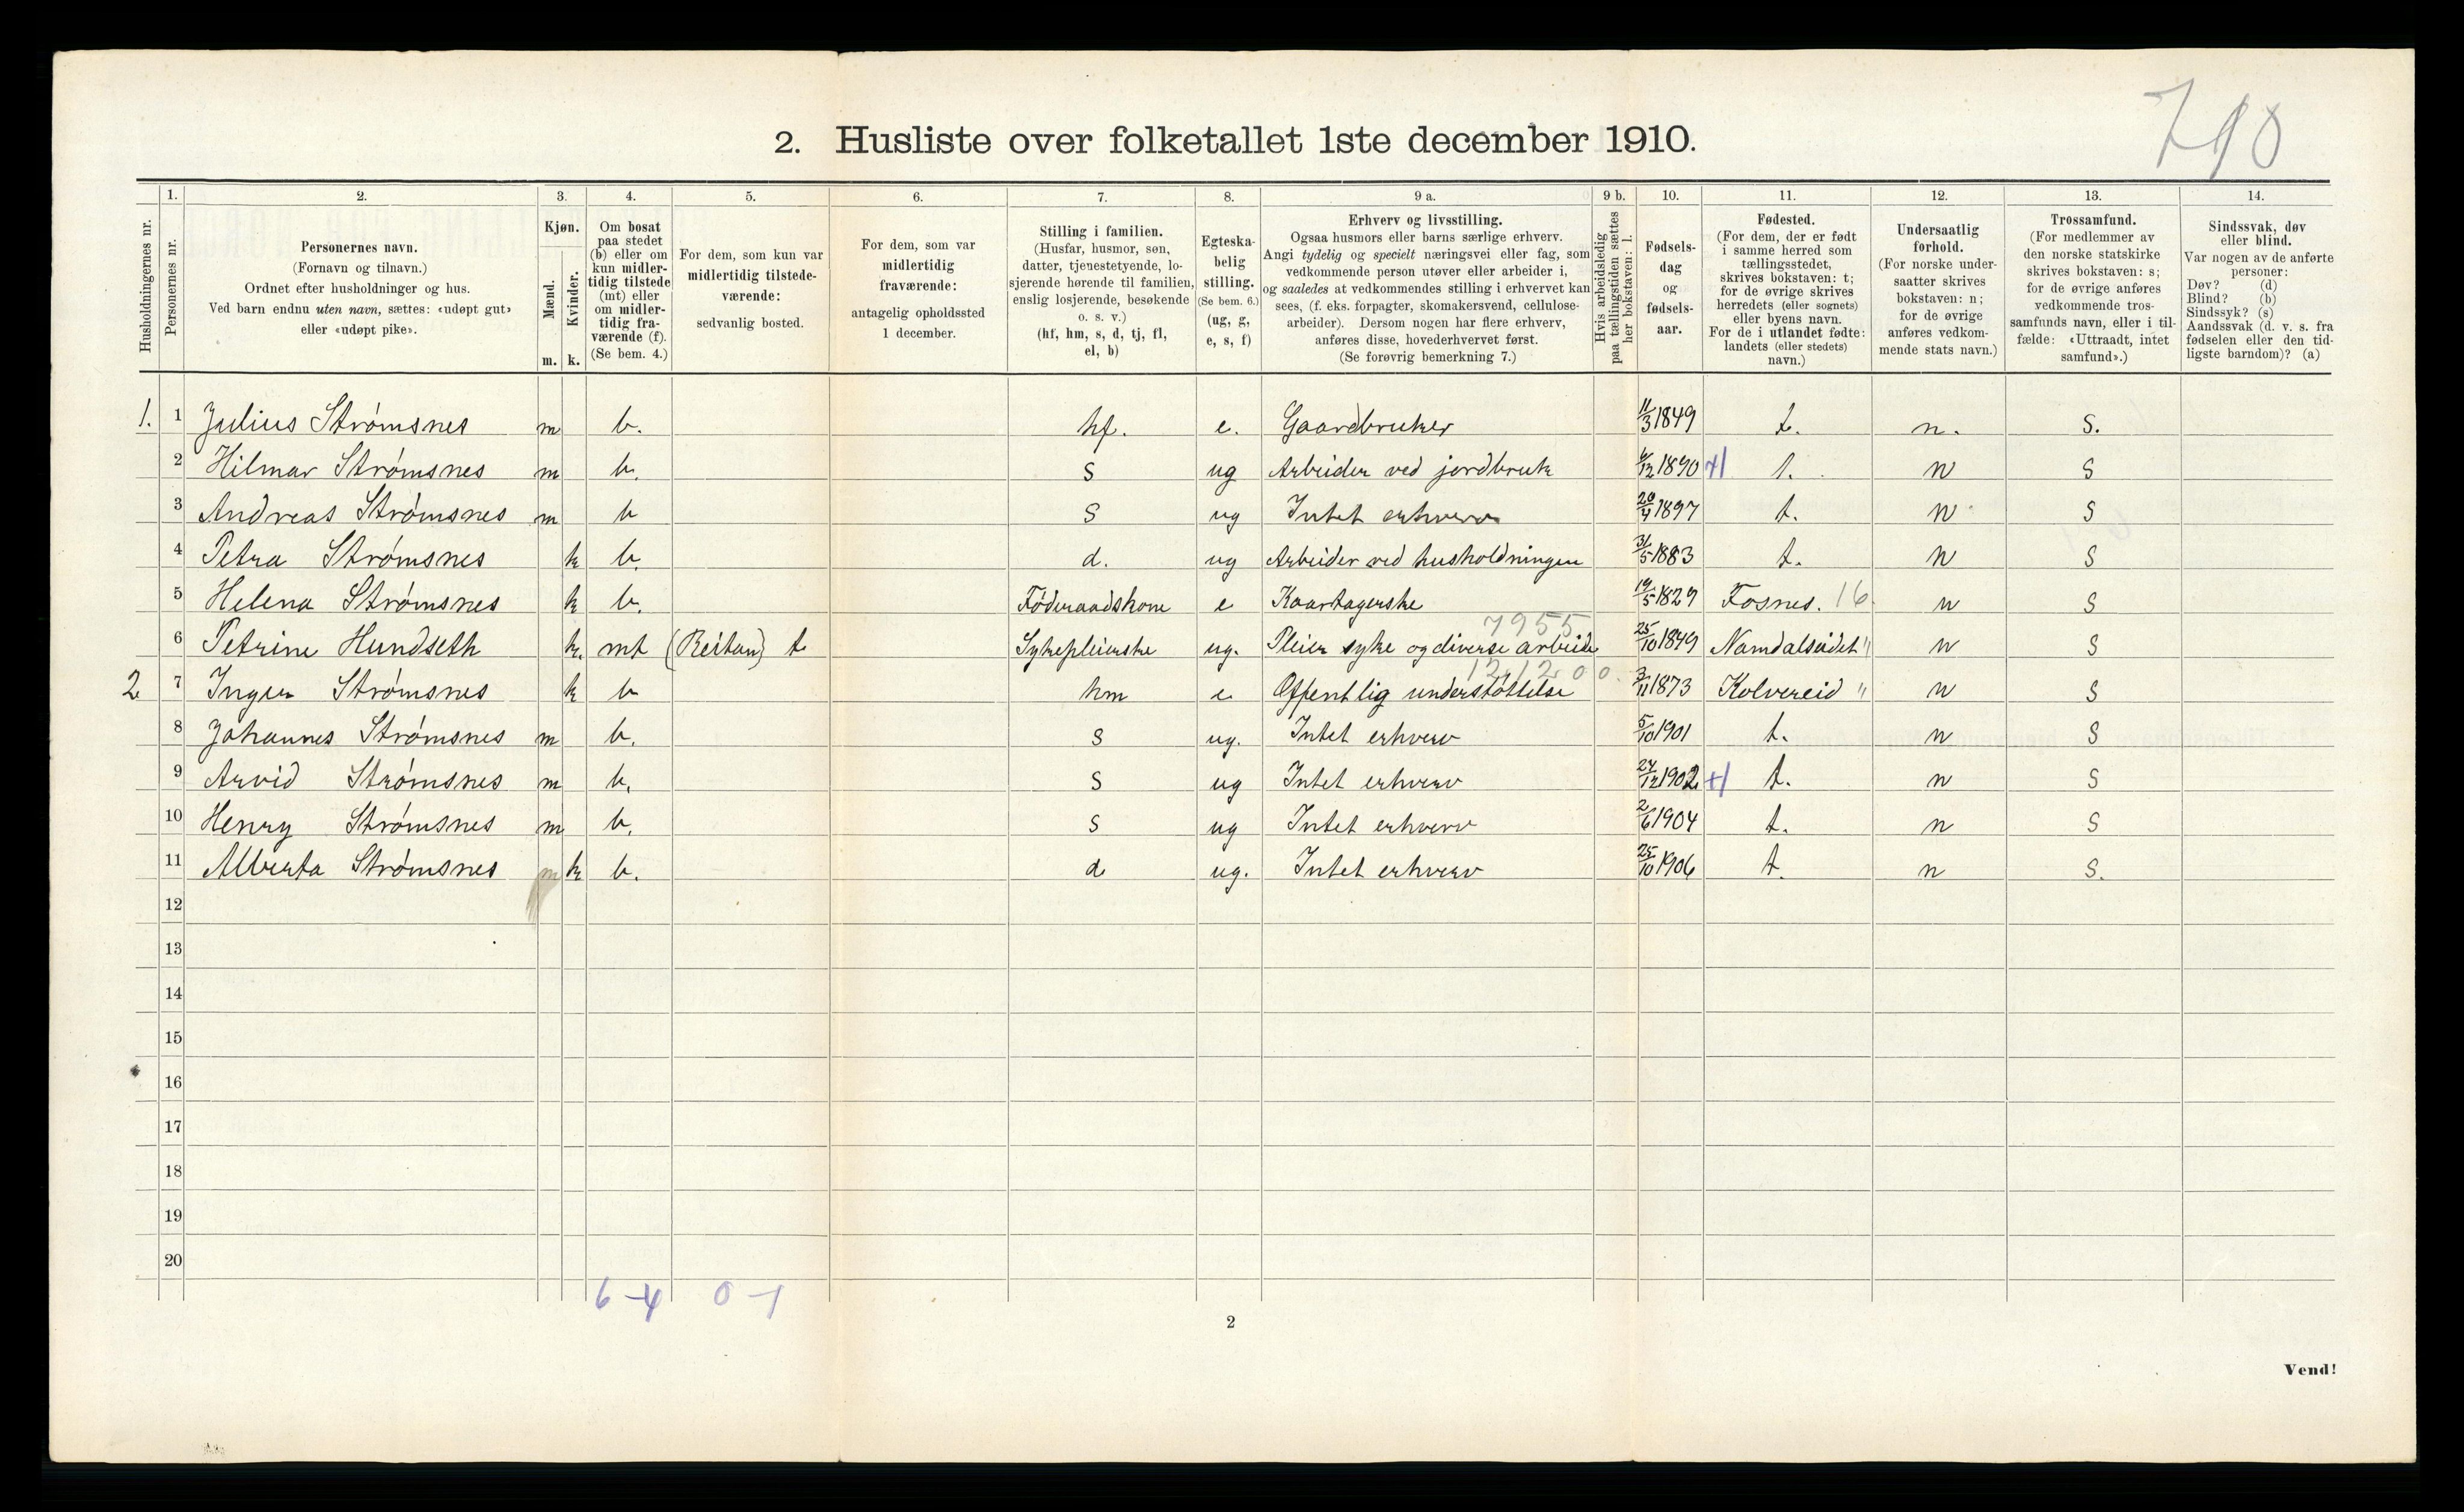 710
2. Husliste over folketallet 1ste december 1910.
Husholdningernes nr.
1.
Personernes nr.
2.
Personernes navn.
(Fornavn og tilnavn.)
Ordnet efter husholdninger og hus.
Ved barn endnu uten navn, sættes: «udøpt gut»
eller «udøpt pike».
3.
Kjøn.
Mænd.
Kvinder.
m. k.
4.
Om bosat
paa stedet
(b) eller om
kun midler-
tidig tilstede
(mt) eller
om midler-
tidig fra-
værende (f).
(Se bem. 4.)
5.
For dem, som kun var
midlertidig tilstede-
værende:
sedvanlig bosted.
6.
For dem, som var
midlertidig
fraværende:
antagelig opholdssted
1 december.
7.
Stilling i familien.
(Husfar, husmor, søn,
datter, tjenestetyende, lo-
sjerende hørende til familien,
enslig losjerende, besøkende
o. s. v.)
(hf, hm, s, d, tj, fl,
el, b)
8.
Egteska-
belig
stilling.
(Se bem. 6.)
(ug, g,
e, s, f)
9 a.
Erhverv og livsstilling.
Ogsaa husmors eller barns særlige erhverv.
Angi tydelig og specielt næringsvei eller fag, som
vedkommende person utøver eller arbeider i,
og saaledes at vedkommendes stilling i erhvervet kan
sees, (f. eks. forpagter, skomakersvend, cellulose-
arbeider). Dersom nogen har flere erhverv,
anføres disse, hovederhvervet først.
(Se forøvrig bemerkning 7.)
9 b.
Hvis arbeidsledig
paa tællingstiden sættes
her bokstaven: l.
10.
Fødsels-
dag
og
fødsels-
aar.
11.
Fødested.
(For dem, der er født
i samme herred som
tællingsstedet,
skrives bokstaven: t;
for de øvrige skrives
herredets (eller sognets)
eller byens navn.
For de i utlandet fødte:
landets (eller stedets)
navn.)
12.
Undersaatlig
forhold.
(For norske under-
saatter skrives
bokstaven: n;
for de øvrige
anføres vedkom-
mende stats navn.)
13.
Trossamfund.
(For medlemmer av
den norske statskirke
skrives bokstaven: s;
for de øvrige anføres
vedkommende tros-
samfunds navn, eller i til-
fælde: «Uttraadt, intet
samfund».)
14.
Sindssvak, døv
eller blind.
Var nogen av de anførte
personer:
Døv? (d)
Blind? (b)
Sindssyk? (s)
Aandssvak (d. v. s. fra
fødselen eller den tid-
ligste barndom)? (a)
1. 1 Julius Strømsnes m b. hf. e. Gaardbruker 11/3 1849 t. n. S.
2 Hilmar Strømsnes m b. S ug Arbeider ved jordbruk 6/12 1890 t. n S
3 Andreas Strømsnes m b S ug Intet erhverv 20/4 1897 t. n S
4 Petra Strømsnes k b. d. ug Arbeider ved husholdningen 31/5 1883 t. n S
5 Helena Strømsnes k b. Føderaadskone e Kaartagerske 19/5 1829 Fosnes. 16. n S
7955
6 Petrine Hundseth k. mt (Reitan) t Sykepleierske ug. Pleier syke og diverse arbeide 25/10 1849 Namdalseidet " n S
121200.
2 7 Inger Strømsnes k b hm e Offentlig understøttelse 3/11 1873 Kolvereid " n S
8 Johannes Strømsnes m b. S ug. Intet erhverv 5/10 1901 t. n S
9 Arvid Strømsnes m b. S ug Intet erhverv 24/12 1902 t. n S
10 Henry Strømsnes m b. S ug Intet erhverv 2/6 1904 t. n S
11 Alberta Strømsnes k b. d ug. Intet erhverv 25/10 1906 t. n S.
12
13
14
15
16
17
18
19
20
6-4 0-1
2
Vend!